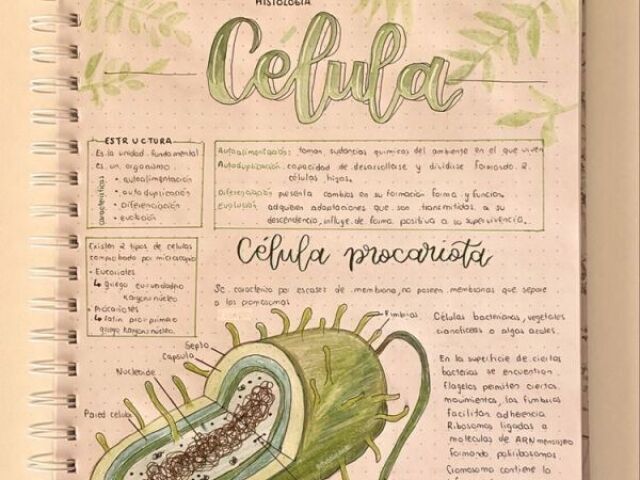 HISTOLOGÍA
Célula
ESTRUCTURA
Es la unidad fundamental
Es un organismo
características
• autoalimentación
• autoduplicación
• diferenciación
• evolución
Autoalimentación: toman sustancias químicas del ambiente en el que viven
Autoduplicación: capacidad de desarollarse y dividirse formando 2
células hijas.
Diferenciación presenta cambios en su formación forma y función.
Evolución adquieren adaptaciones que son transmitidas a su
descendencia, influye de forma positiva a su supervivencia.
Existen 2 tipos de celulas
comprobado por microscopio
• Eucariotes
↳ griego eu=verdadero
karyon=núcleo
• Procariotes
↳ latín pro=primero
griego karyon=núcleo.
Célula procariota
Se caracteriza por escases de membrana, no poseen membranas que separe
a los cromosomas
Células bacterianas, vegetales
cianofíceas o algas azules.
En la superficie de ciertas
bacterias se encuentran
Flagelos permiten ciertos
movimientos, las fimbrias
facilitan adherencia
Ribosomas ligados a
moleculas de ARN mensajero
Formando poliribosomas
Cromosoma contiene la
Fimbrias
Septo
Capsula
Nucleoide
Pared celular